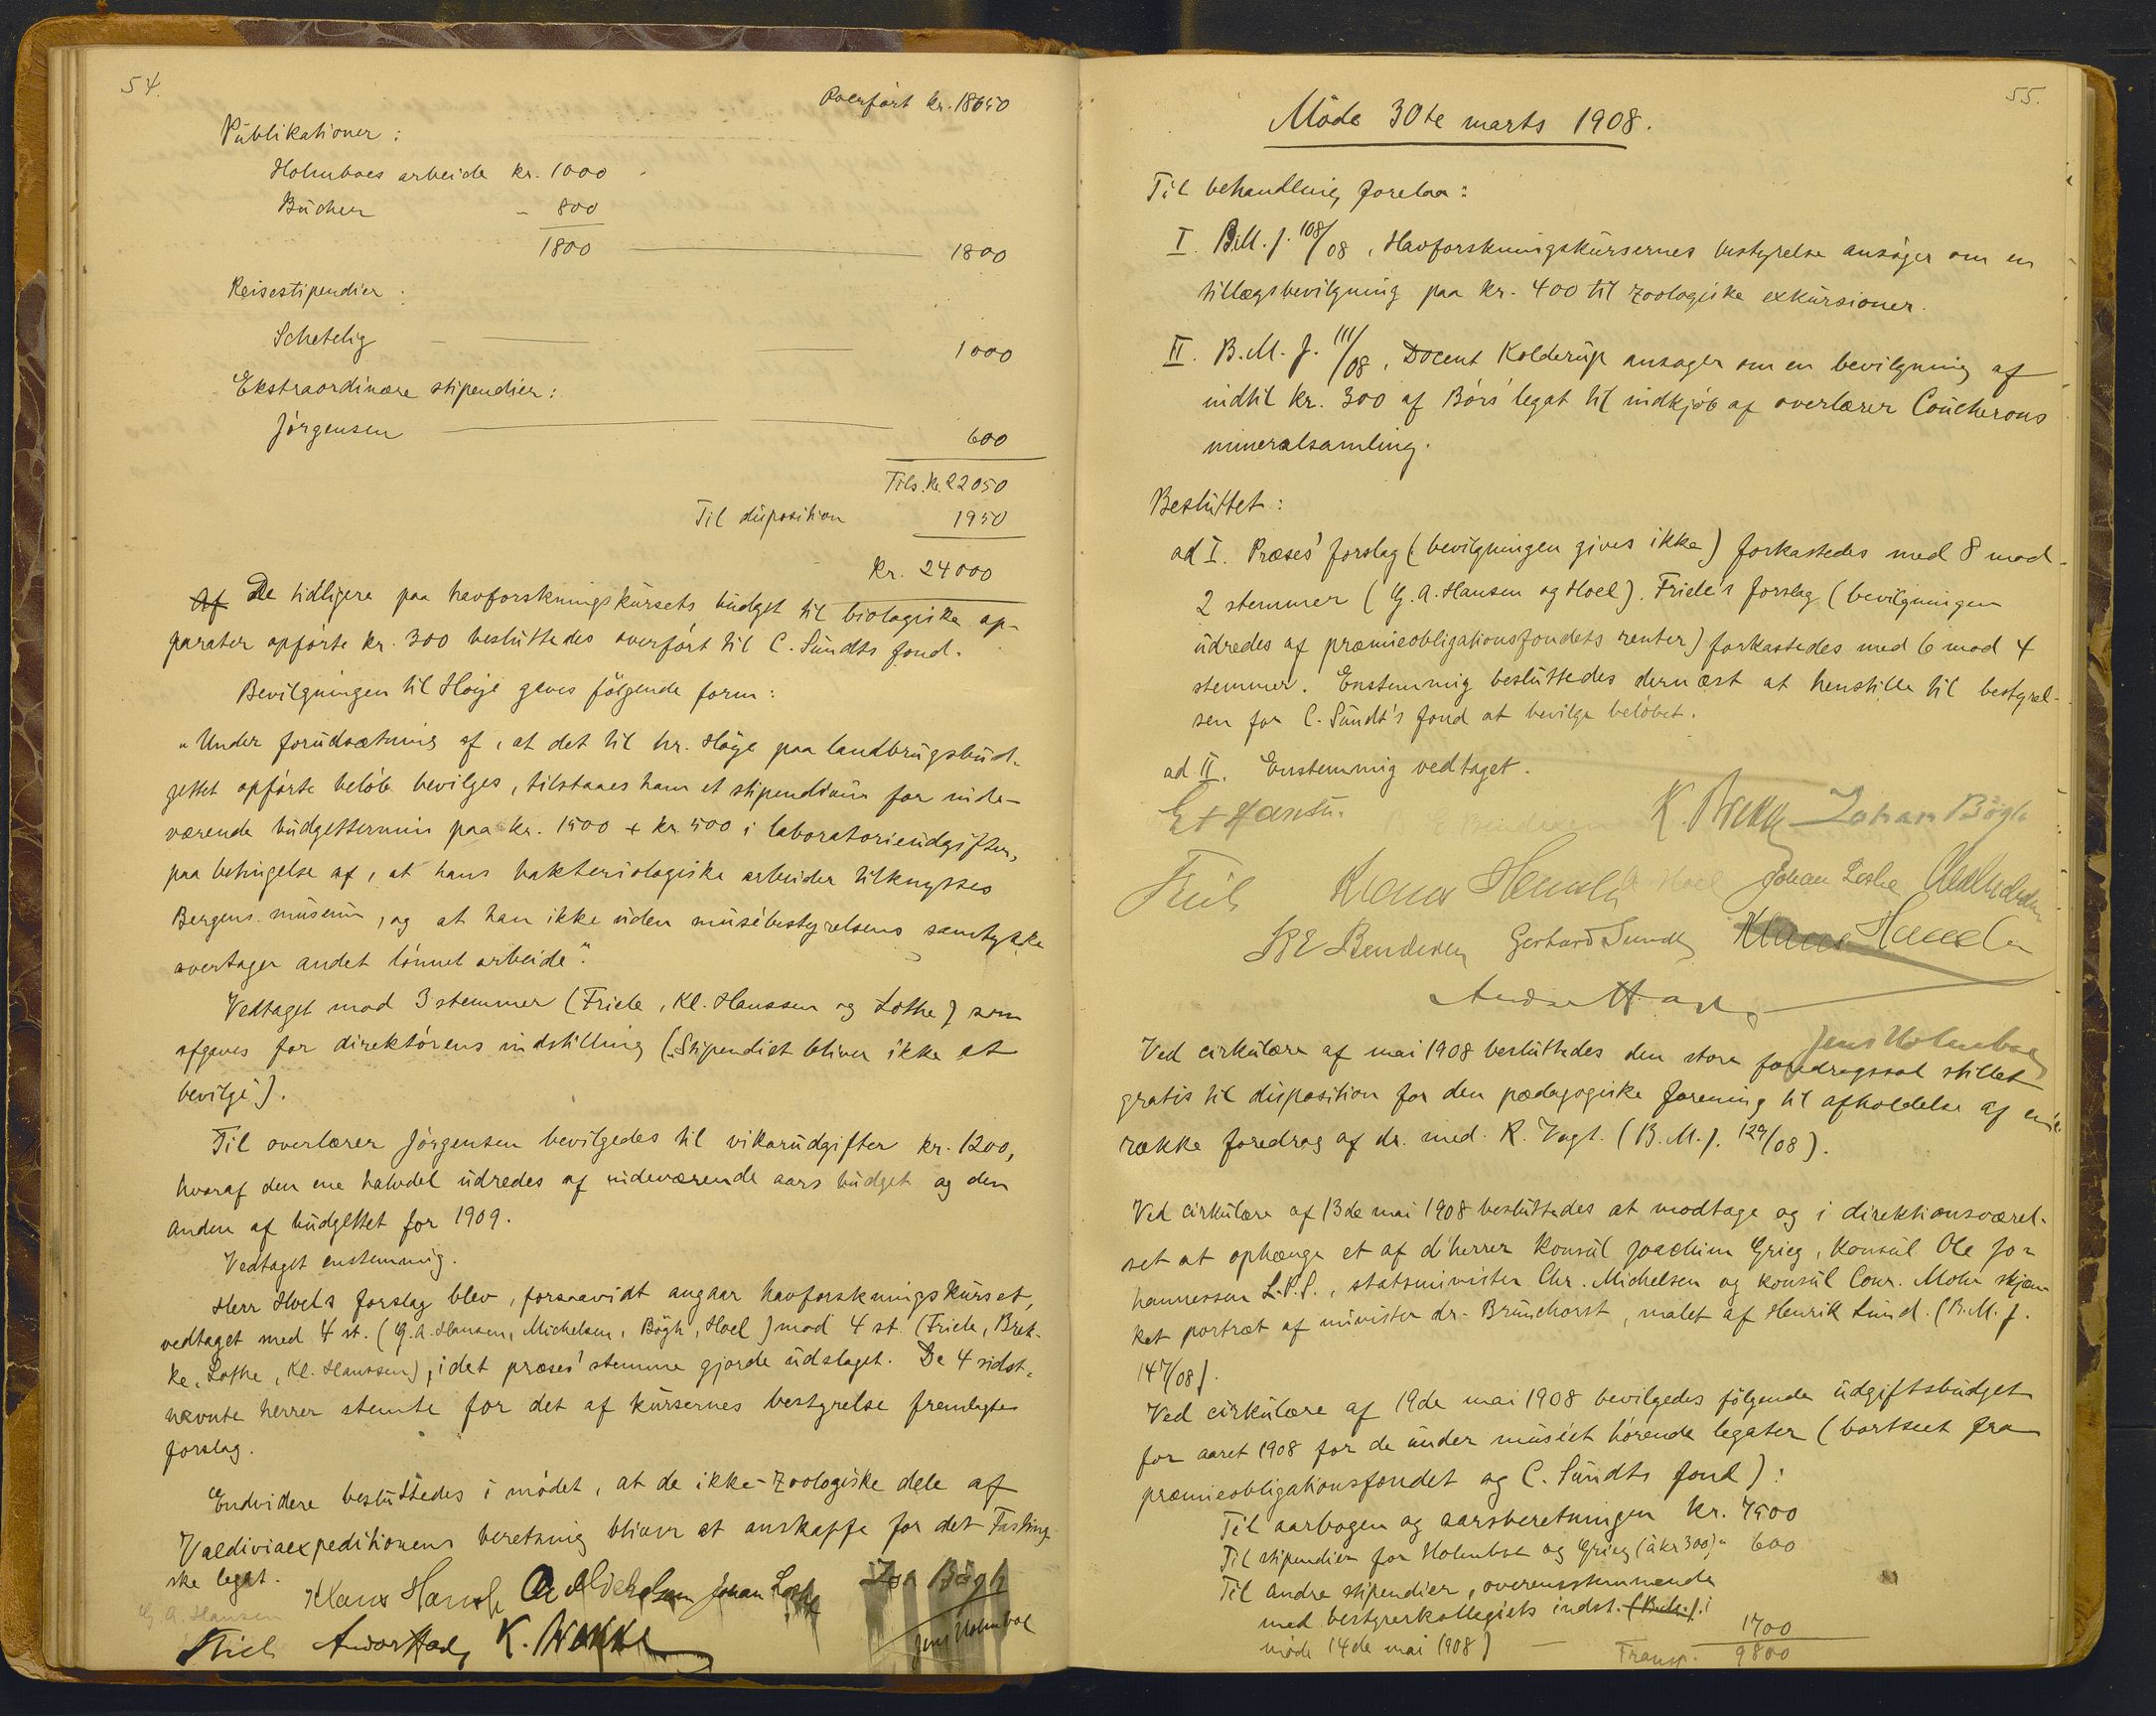 54.
Overført kr. 18650
Publikationer:
Holmboes arbeide kr. 1000
Bücher - 800
1800 1800
Reisestipendier:
Schetelig - 1000
Ekstraordinære stipendier:
Jørgensen 600
Tils. kr. 22050
Til disposition 1950
Kr. 24000
Af De tidligere paa havforskningskursets budget til biologiske ap-
parater opførte kr. 300 besluttedes overført til C. Sundts fond.
Bevilgningen til Høye gaves følgende form:
"Under forudsætning af, at det til hr. Høye paa landbrugsbud-
gettet opførte beløb bevilges, tilstaaes ham et stipendium for inde-
værende budgettermin paa kr. 1500 + kr. 500 i laboratorieudgifter,
paa betingelse af, at hans bakteriologiske arbeider tilknyttes
Bergens museum, og at han ikke uden musébestyrelsens samtykke
overtager andet lønnet arbeide".
Vedtaget mod 3 stemmer (Friele, Kl. Hanssen og Lothe) som
afgaves for direktørens indstilling ("Stipendiet bliver ikke at
bevilge").
Til overlærer Jørgensen bevilgedes til vikarudgifter kr. 1200,
hvoraf den ene halvdel udredes af indeværende aars budget og den
anden af budgettet for 1909.
Vedtaget enstemmig.
Herr Hoels forslag blev, forsaavidt angaar havforskningskurset,
vedtaget med 4 st. (G. A. Hansen, Michelsen, Bøgh, Hoel) mod 4 st. (Friele, Brek-
ke, Lothe, Kl. Hanssen), idet præses' stemme gjorde udslaget. De 4 sidst-
nævnte herrer stemte for det af kursernes bestyrelse fremlagte
forslag.
Endvidere besluttedes i mødet, at de ikke-zoologiske dele af
Valdiviaexpeditionens beretning bliver at anskaffe for det Fasting-
ske legat.
Klaus Hanssen Johan Lothe Joh Bøgh
G. A. Hansen
Friele K. Brekke Jens Holmboe
55.
Møde 30te marts 1908.
Til behandling forelaa:
I. B.M. J. 108/08, Havforskningskursernes bestyrelse ansøger om en
tillægsbevilgning paa kr. 400 til zoologiske exkursioner.
II. B.M. J. 111/08, Docent Kolderup ansøger om en bevilgning af
indtil kr. 300 af Børs' legat til indkjøb af overlærer Coucherons
mineralsamling.
Besluttet:
ad I. Præses' forslag (bevilgningen gives ikke) forkastedes med 8 mod
2 stemmer (G. A. Hansen og Hoel). Friele's forslag (bevilgningen
udredes af præmieobligationsfondets renter) forkastedes med 6 mod 4
stemmer. Enstemmig besluttedes dernæst at henstille til bestyrel-
sen for C. Sundt's fond at bevilge beløbet.
ad II. Enstemmig vedtaget.
G A Hansen K. Brekke Johan Bøgh
Friele Klaus Hanssen A Hoel Johan Lothe
B E Bendixen Gerhard Sundt Klaus Hanssen
Jens Holmboe
Ved cirkulære af mai 1908 besluttedes den store foredragssal stillet
gratis til disposition for den pædagogiske forening til afholdelse af en
række foredrag af dr. med. R. Vogt. (B. M. J. 129/08).
Ved cirkulære af 13de mai 1908 besluttedes at modtage og i direktionsværel-
set at ophænge et af d'herrer konsul Joachim Grieg, konsul Ole Jo-
hannessen L.P.S., statsminister Chr. Michelsen og konsul Conr. Mohr skjæn-
ket portræt af minister dr. Brunchorst, malet af Henrik Lund. (B. M. J.
147/08).
Ved cirkulære af 19de mai 1908 bevilgedes følgende udgiftsbudget
for aaret 1908 for de under muséet hørende legater (bortseet fra
præmieobligationsfondet og C. Sundts fond):
Til aarbogen og aarsberetningen kr. 7500
Til stipendier for Holmboe og Grieg (à kr 300) " 600
Til andre stipendier, overensstemmende
med bestyrerkollegiets indst. i
møde 14de mai 1908) - 1700
Transp. 9800